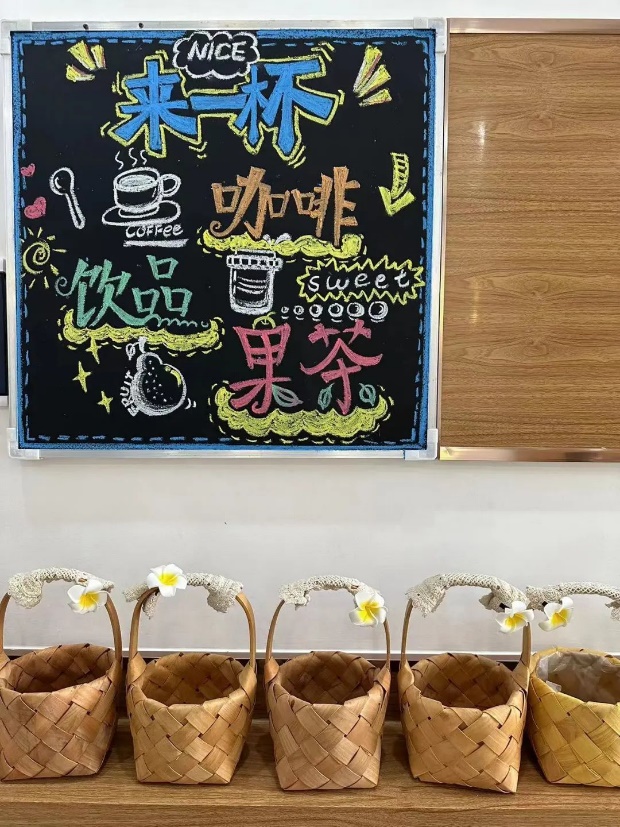 NICE
来一杯
COFFEE
咖啡
饮品
sweet
FRUIT
果茶